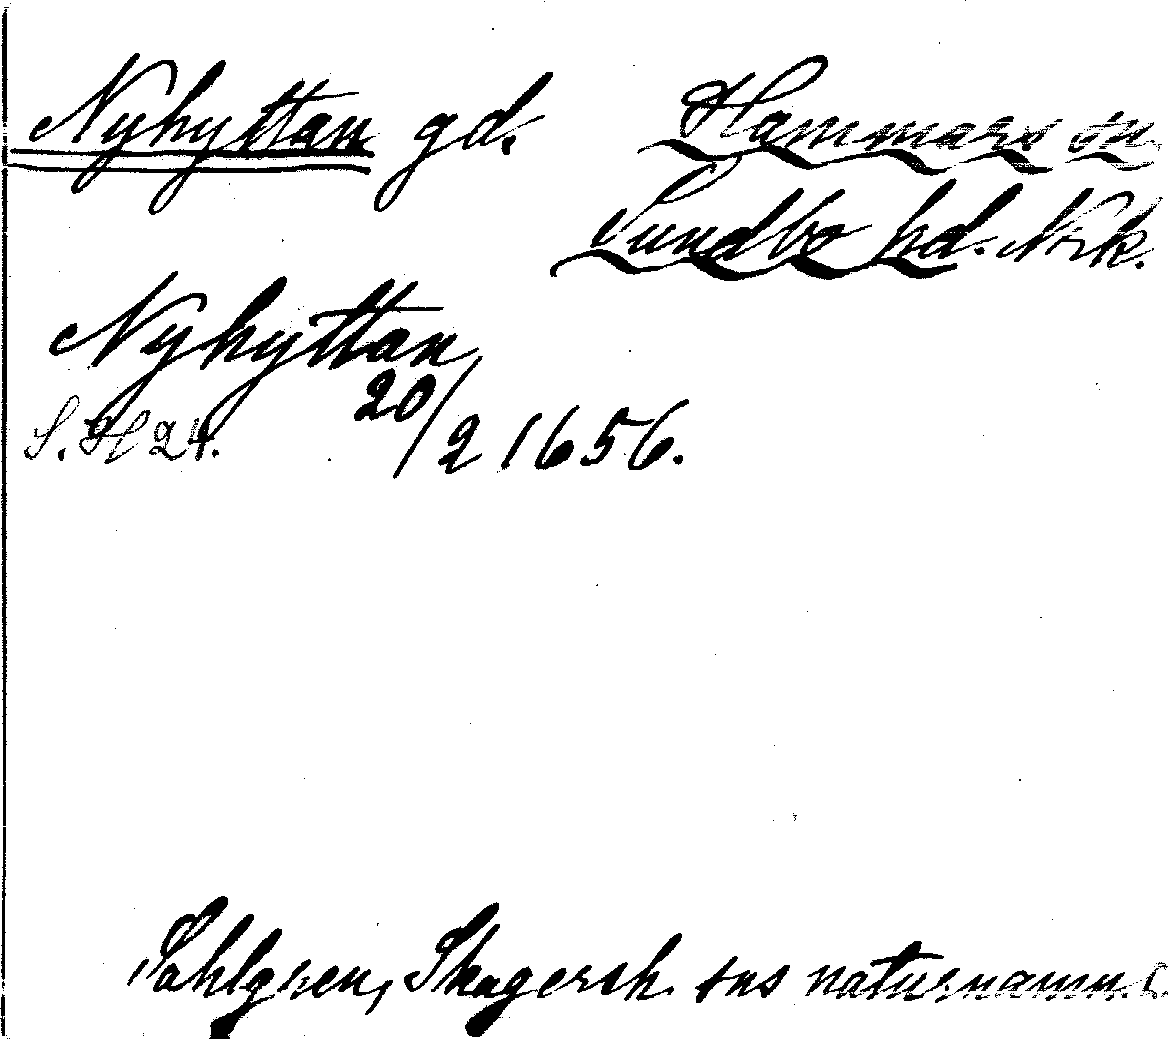 Nyhyttan gd. Hammars sn
Sundbo hd. Nrk.
Nyhyttan
20/2 1656.
S. H 24.
Sahlgren, Skagersh. sns naturnamn.